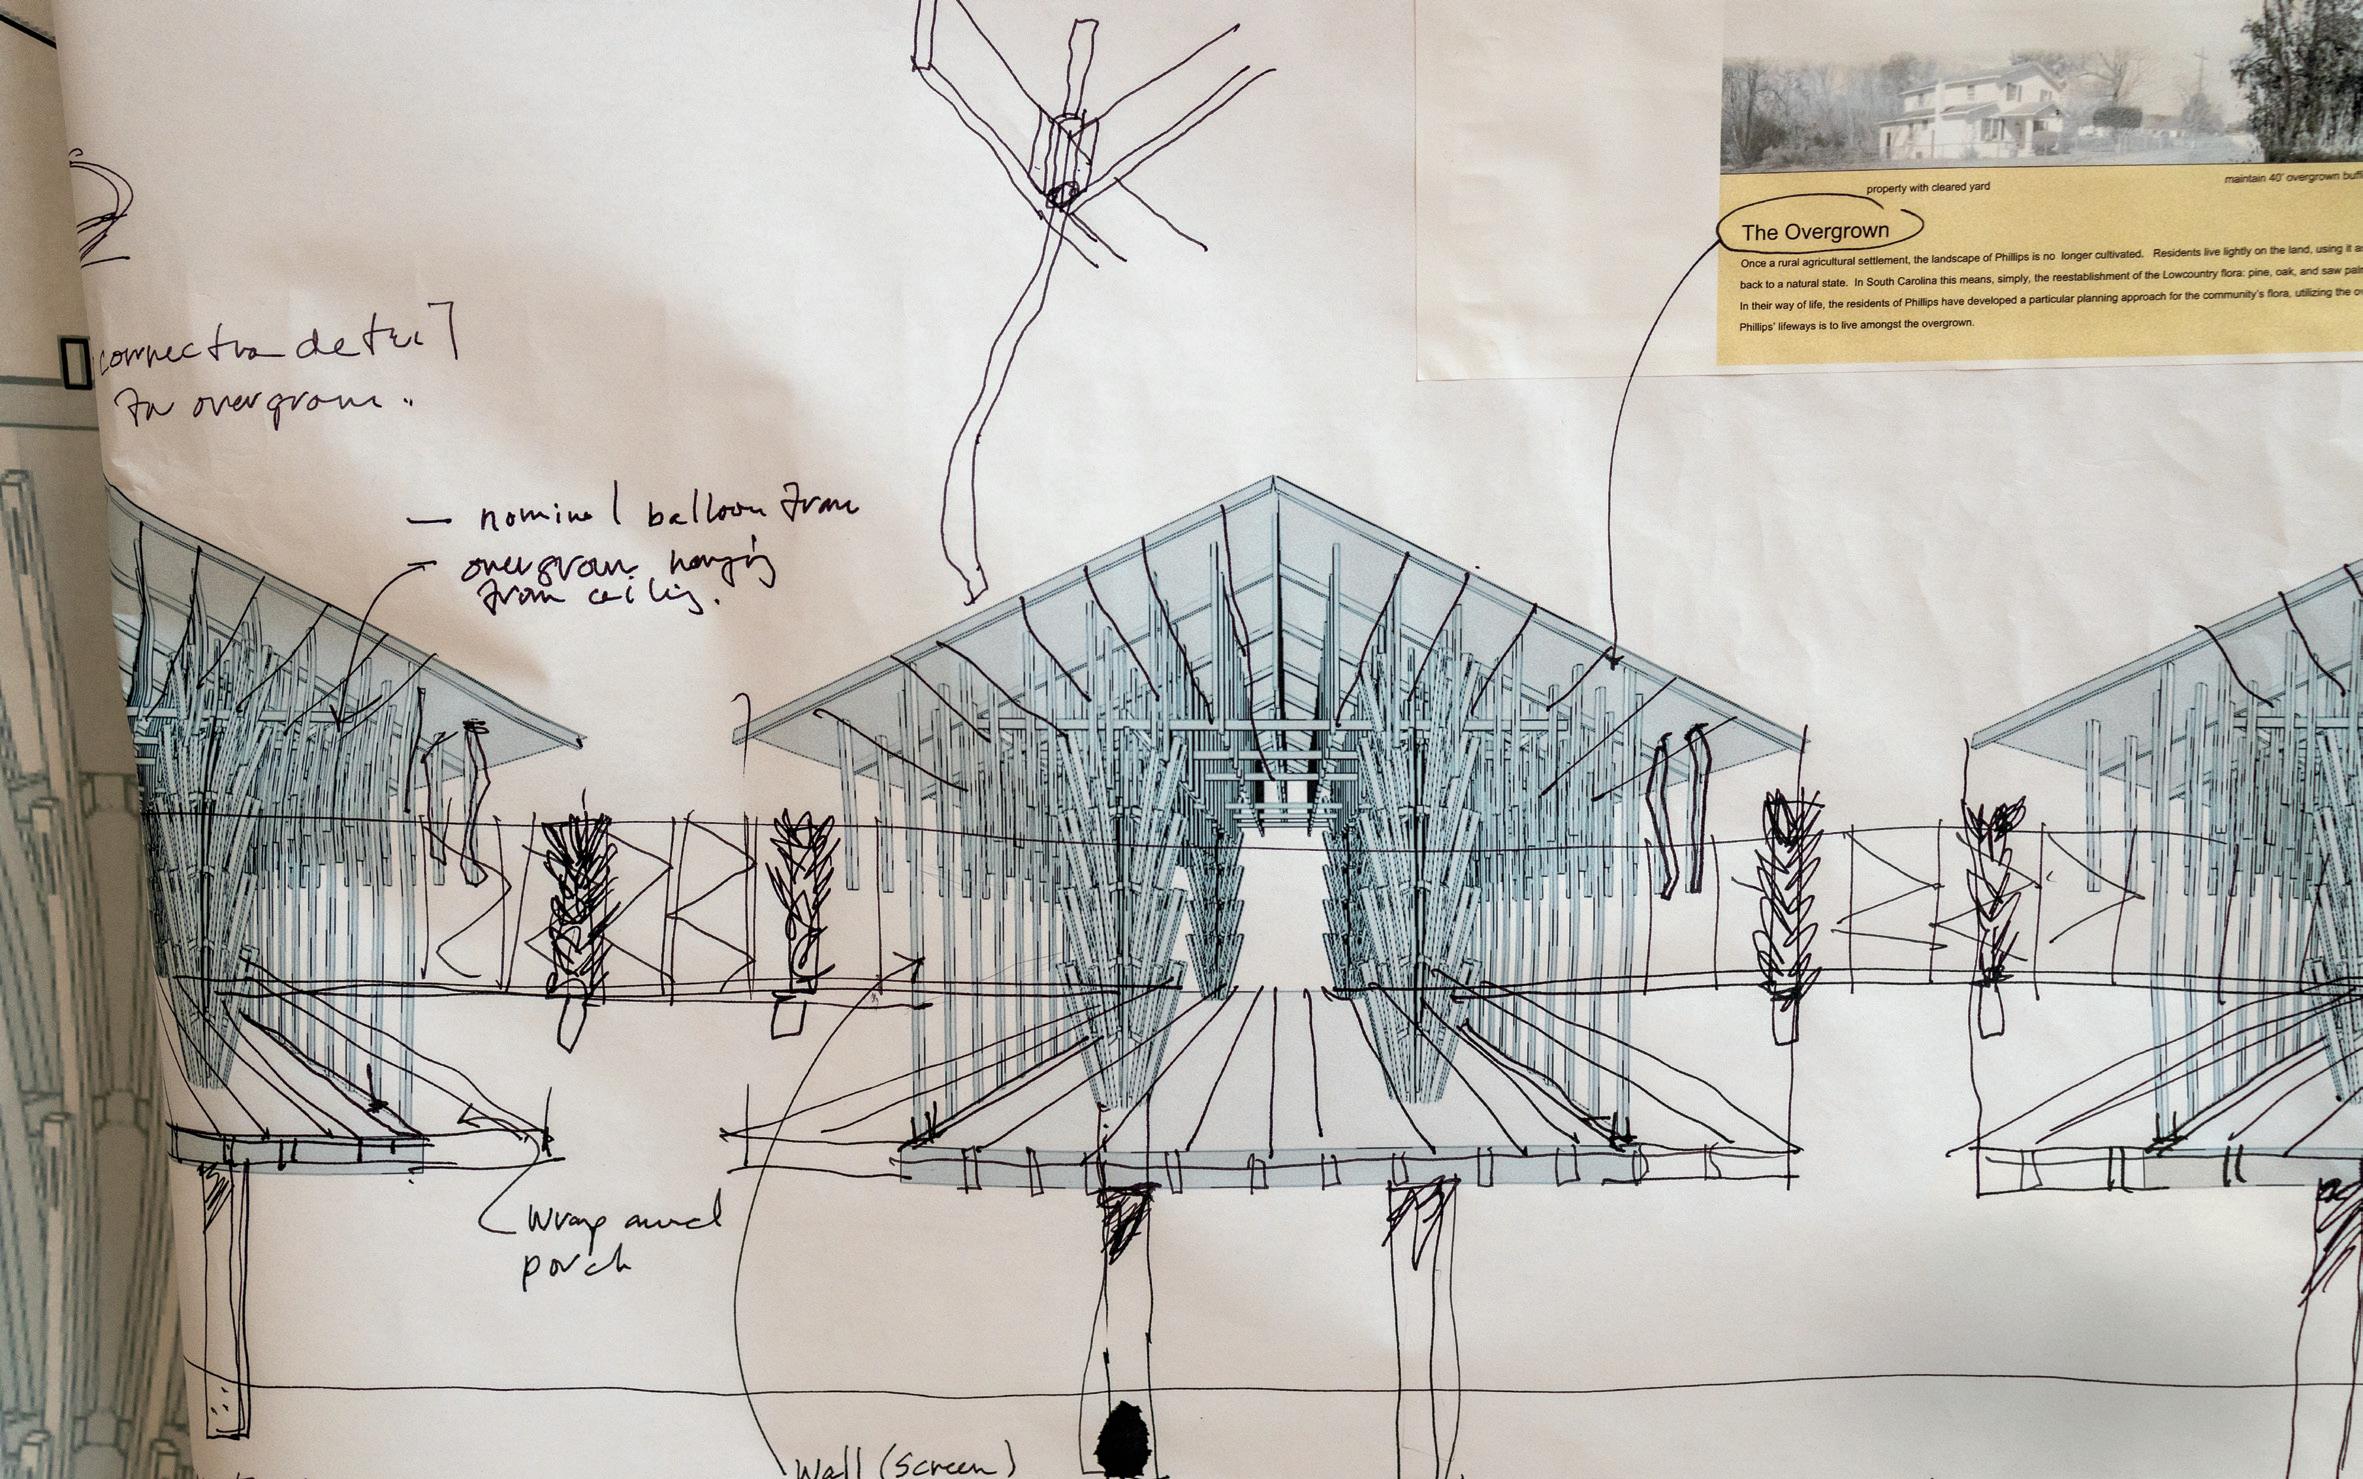 property with cleared yard
maintain 40' overgrown buff
The Overgrown
Once a rural agricultural settlement, the landscape of Phillips is no longer cultivated. Residents live lightly on the land, using it a
back to a natural state. In South Carolina this means, simply, the reestablishment of the Lowcountry flora: pine, oak, and saw pal
In their way of life, the residents of Phillips have developed a particular planning approach for the community's flora, utilizing the ov
Phillips' lifeways is to live amongst the overgrown.
connection detail
for overgrown..
— nominal balloon frame
— overgrown hanging
from ceiling.
Wrap around
porch
Wall (screen)